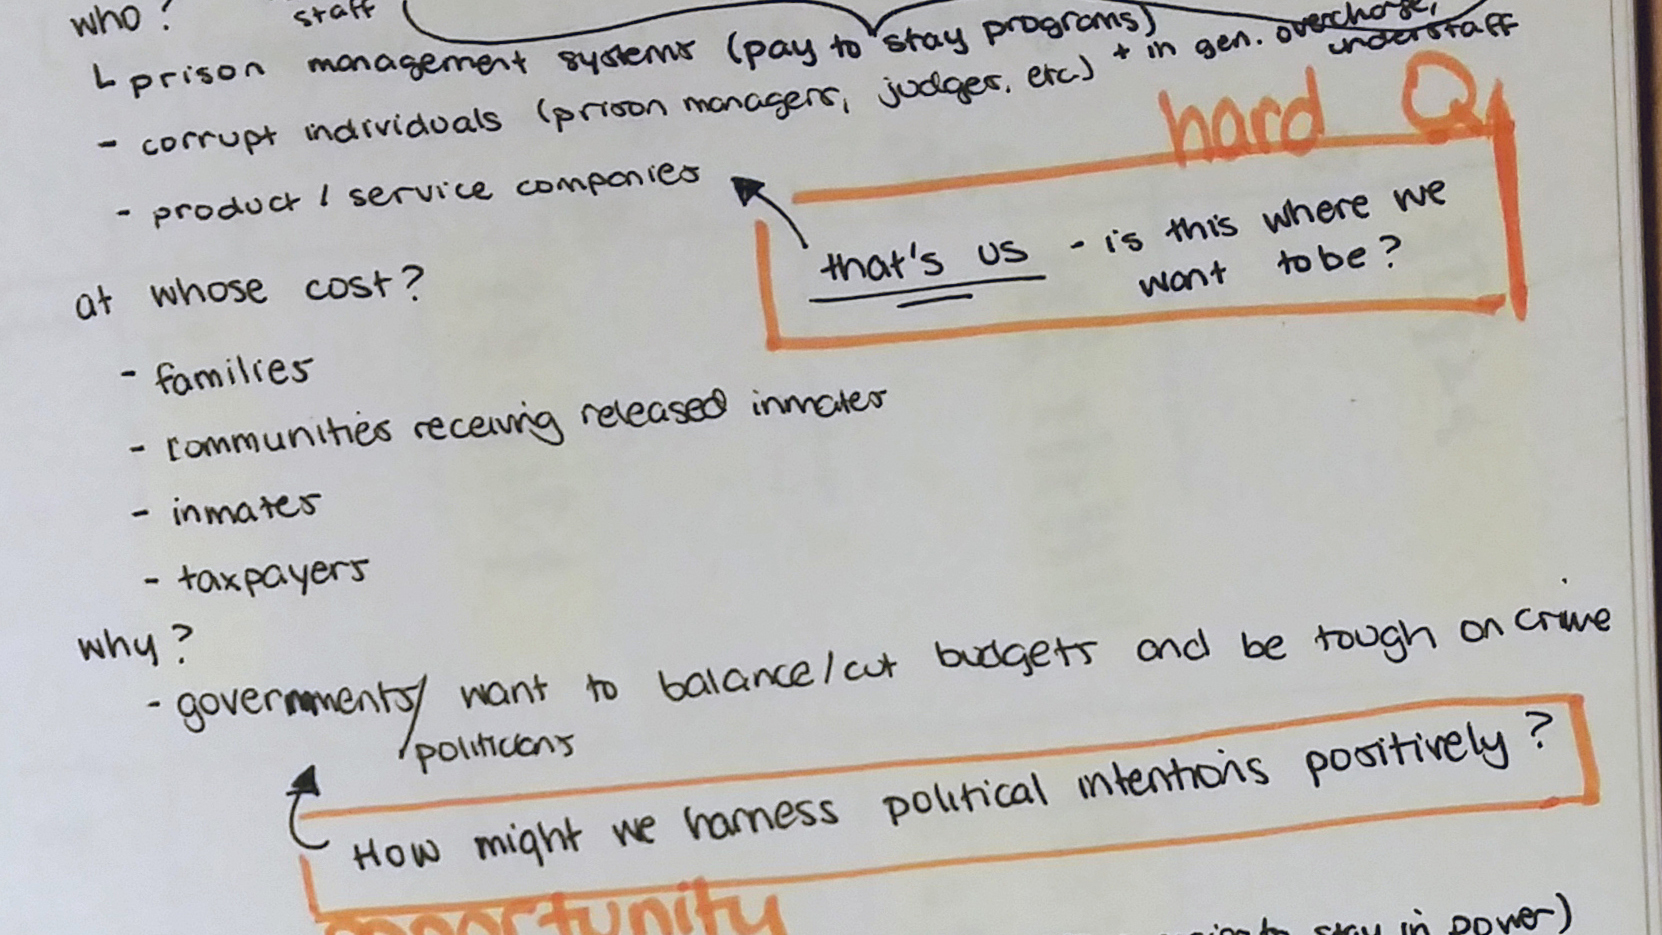 who?
staff
↳ prison management systems (pay to stay programs)
+ in gen. overcharge,
understaff
- corrupt individuals (prison managers, judges, etc.)
- product / service companies
hard Q
that's us - is this where we
want to be?
at whose cost?
- families
- communities receiving released inmates
- inmates
- taxpayers
why?
- governments/ want to balance/cut budgets and be tough on crime
/politicians
How might we harness political intentions positively?
opportunity
to stay in power)